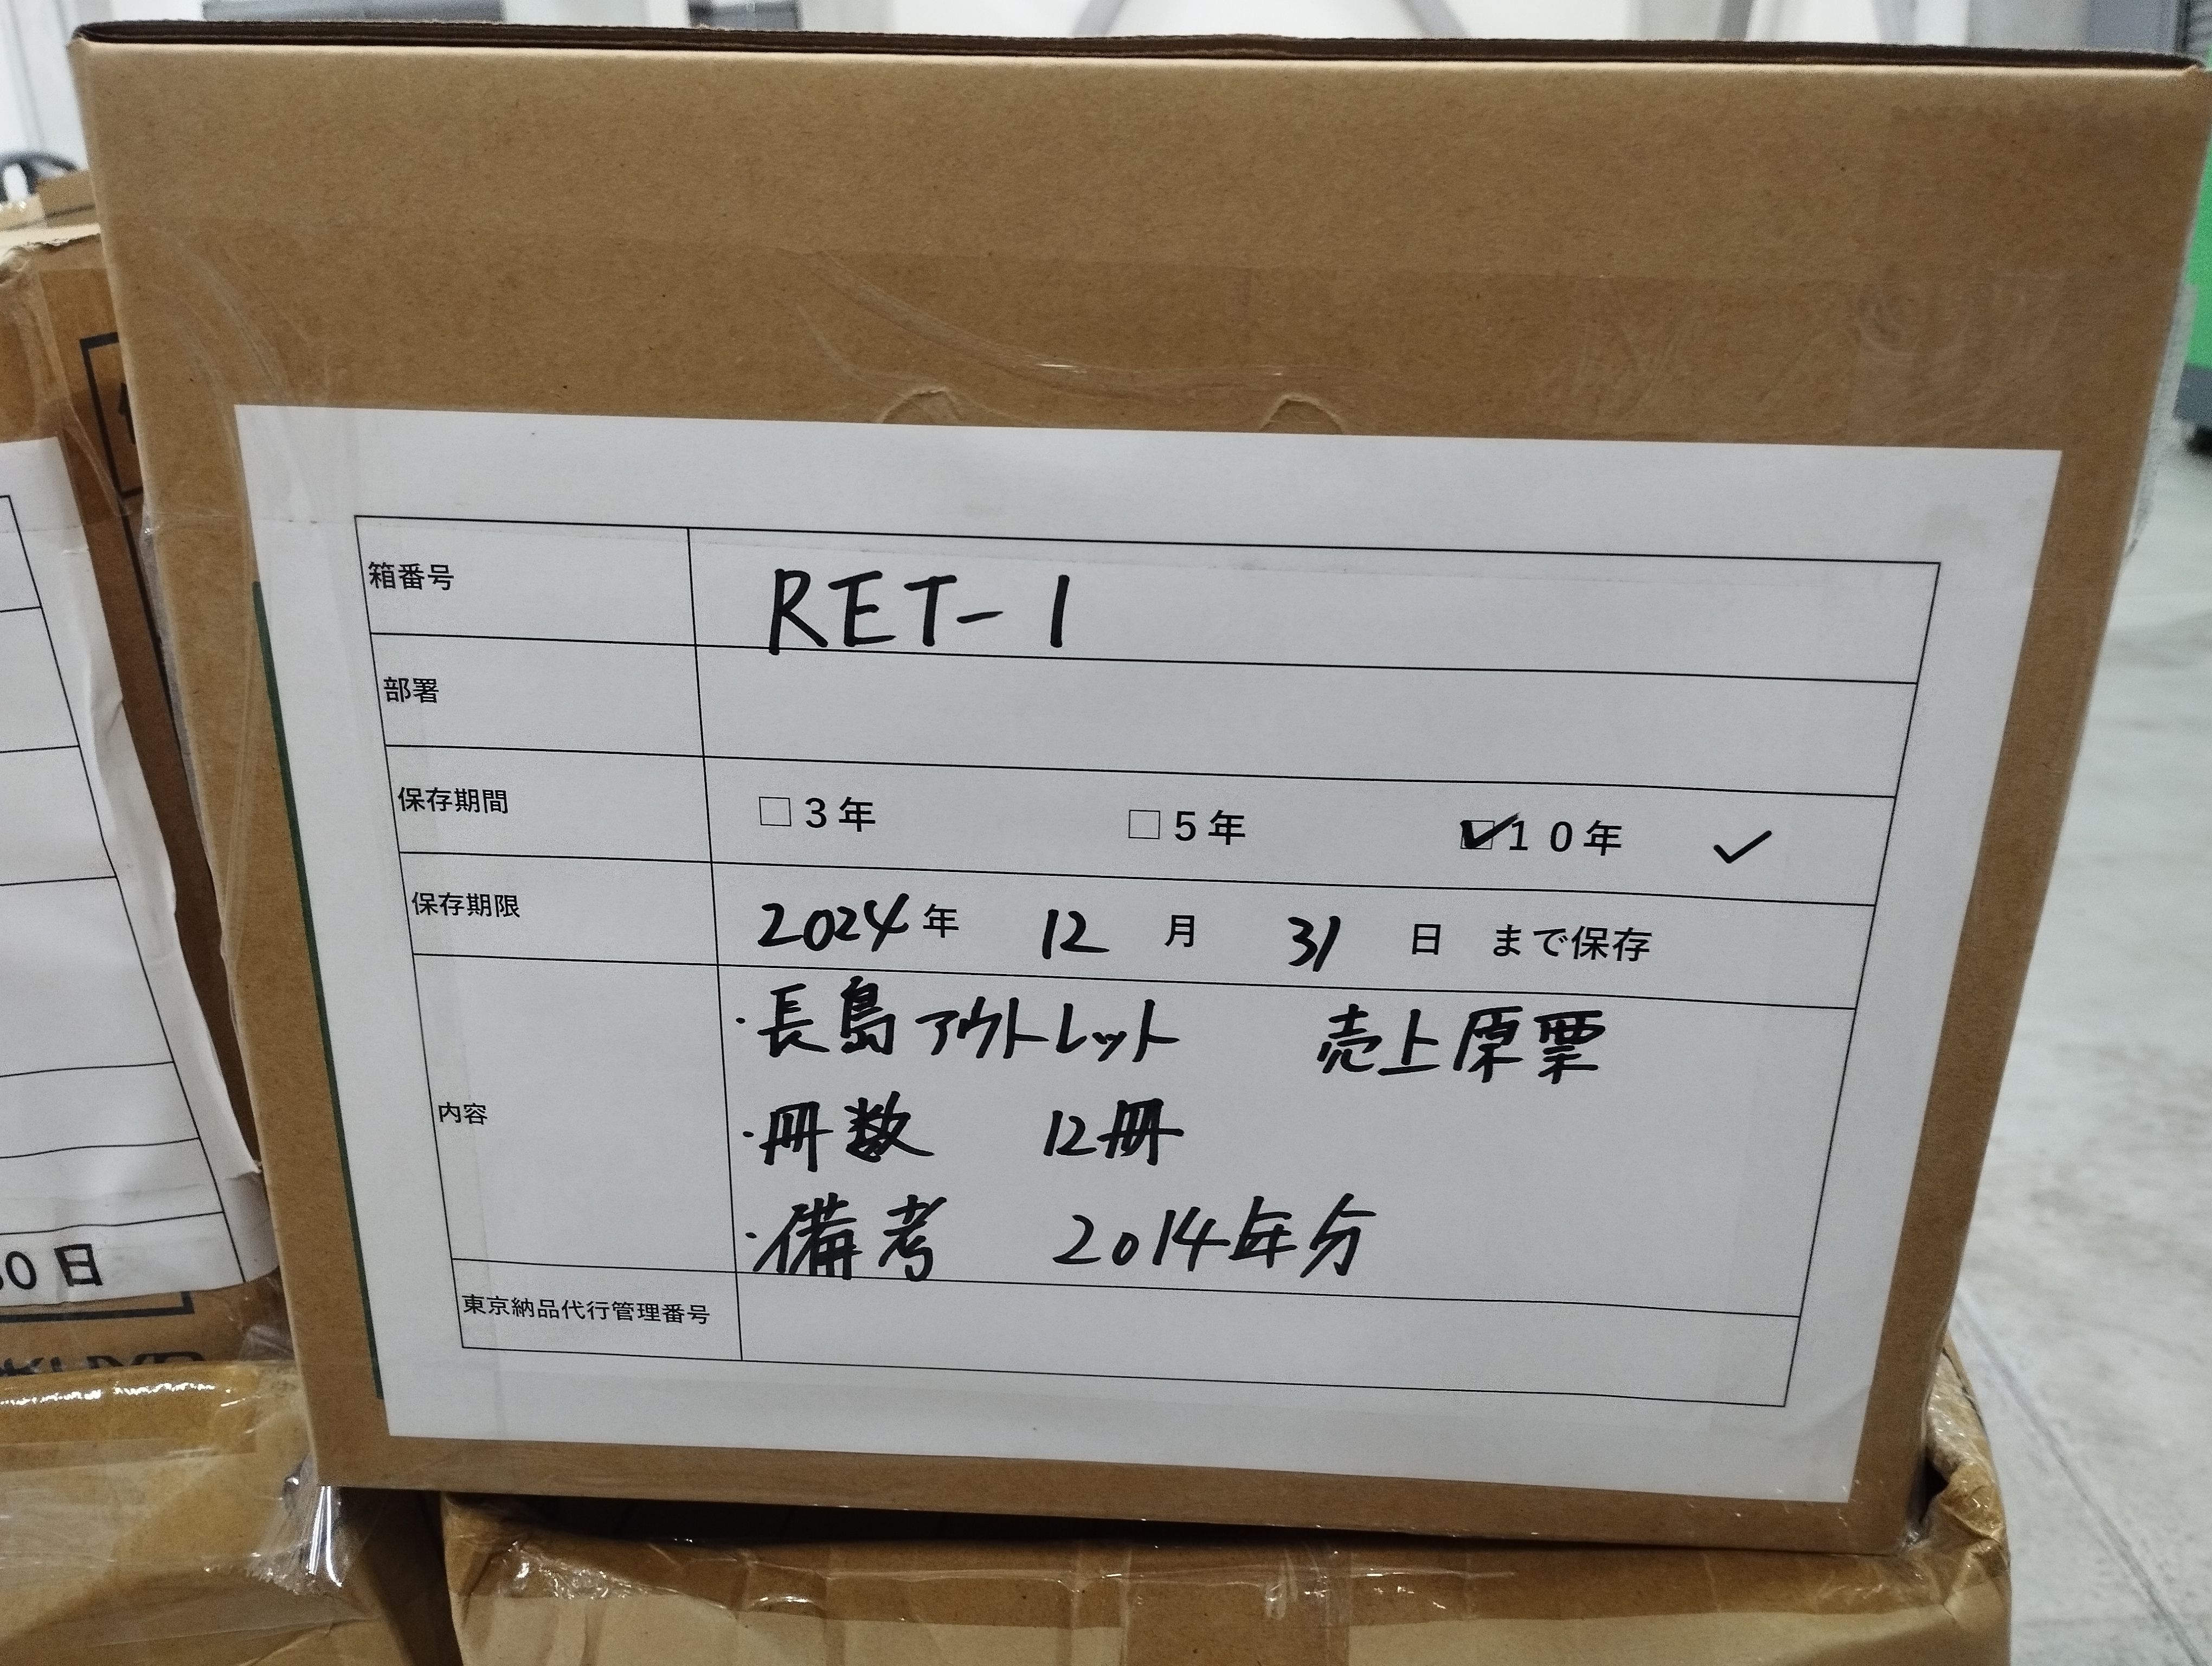 箱番号 RET-1
部署
保存期間 □3年 □5年 ☑10年 ✓
保存期限 2024年 12月 31日 まで保存
内容
・長島アウトレット 売上原票
・冊数 12冊
・備考 2014年分
東京納品代行管理番号
0日